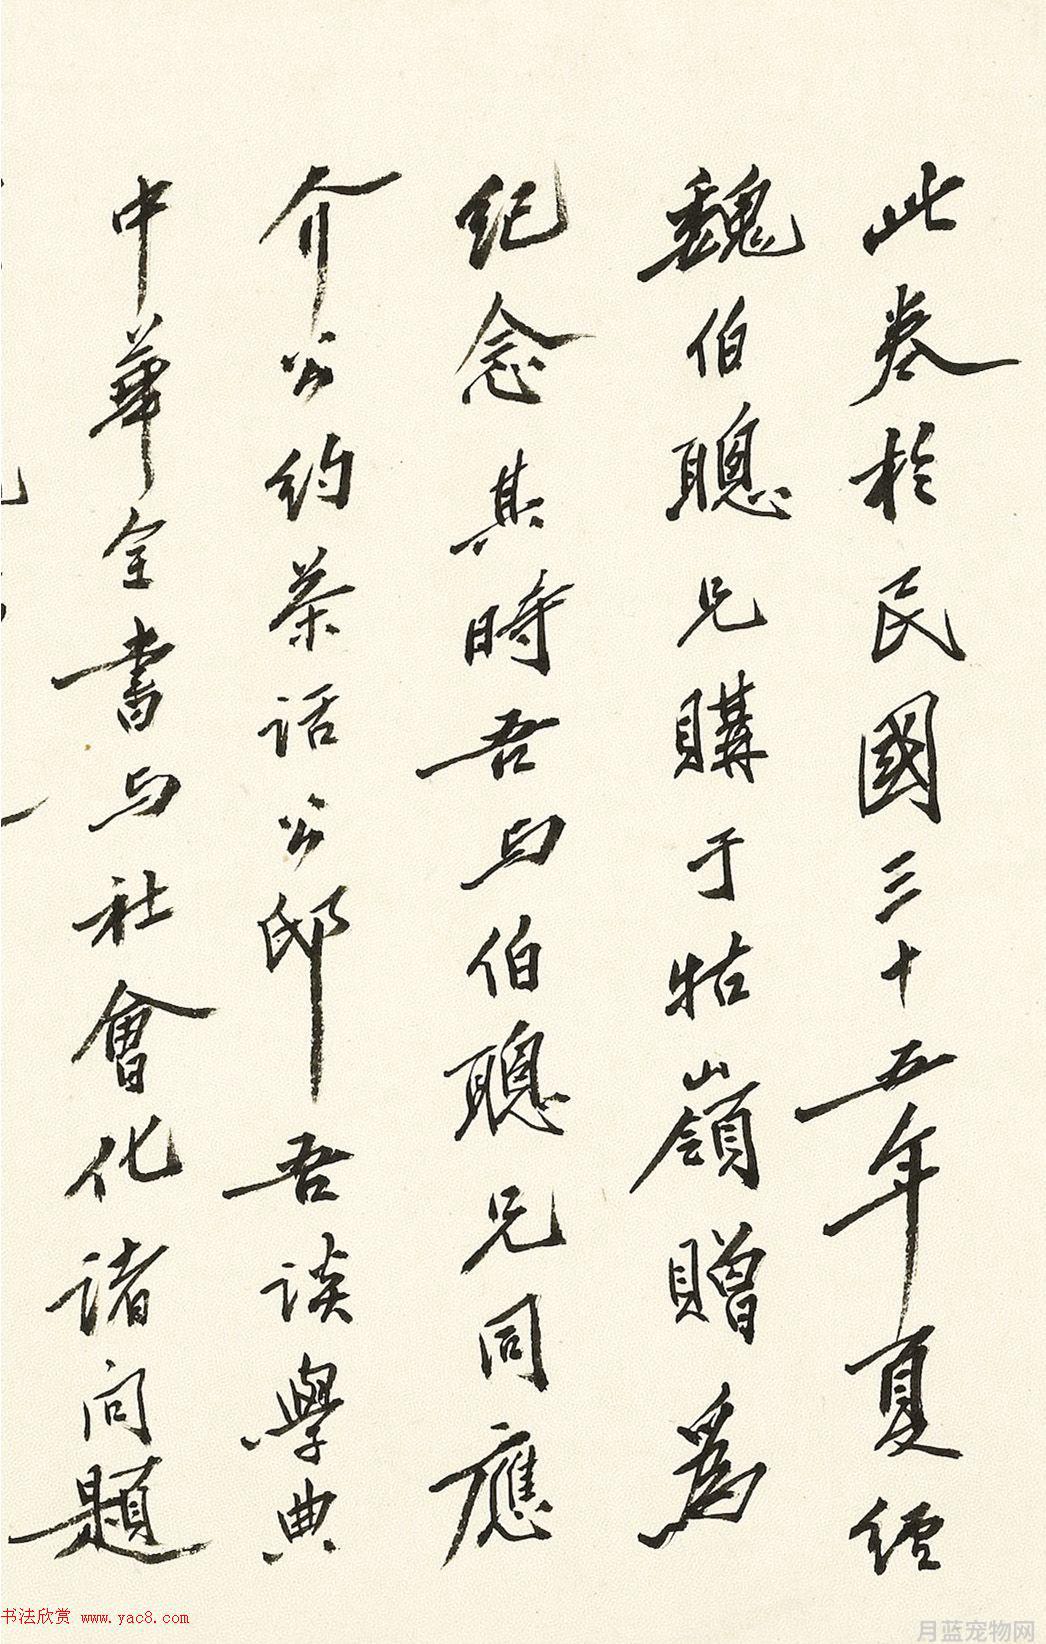 此卷於民國三十五年夏經
魏伯聰兄購于牯嶺贈爲
紀念其時吾与伯聰兄同應
介公约茶話公邸吾談學典
中華全書与社會化诸问題
书法欣赏 www.yac8.com
月蓝宠物网